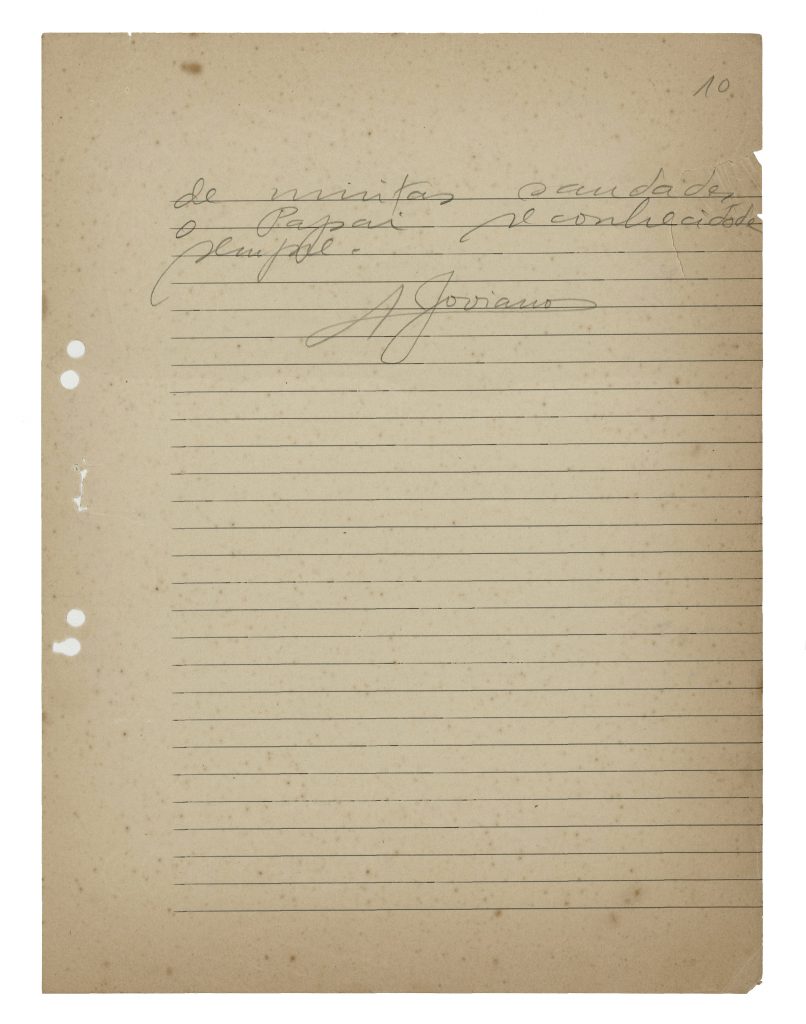 10
de muitas saudades,
o Papai reconhecido de
sempre.
A Joviano